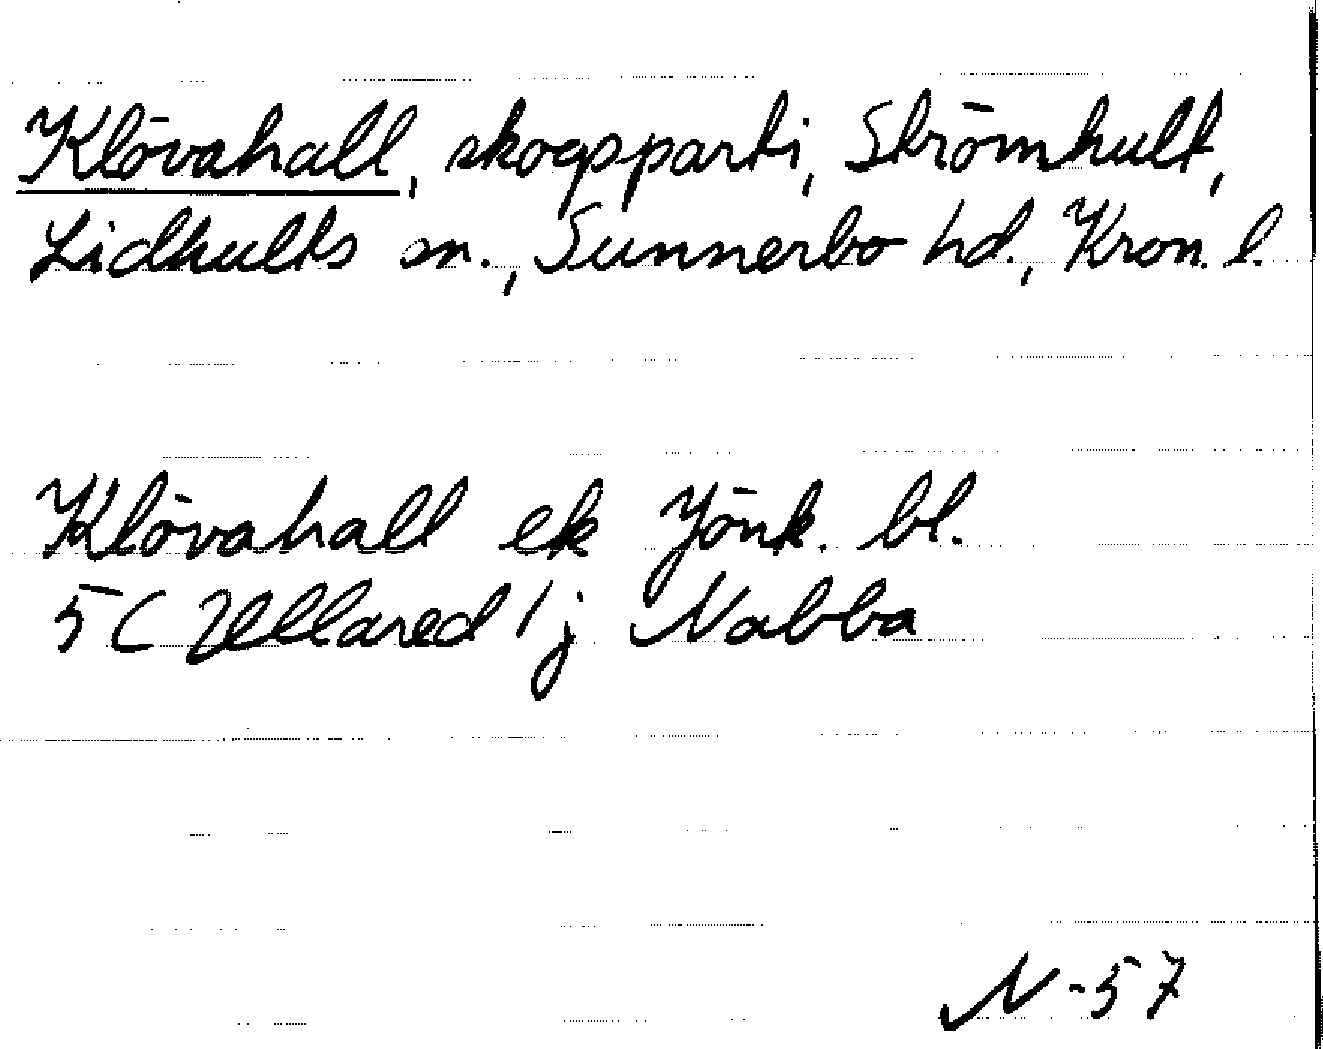 Klövahall, skogsparti, Strömhult,
Lidhults sn., Sunnerbo hd., Kron. l.
Klövahall ek Jönk. bl.
5 C Ullared / j Nabba
N-57